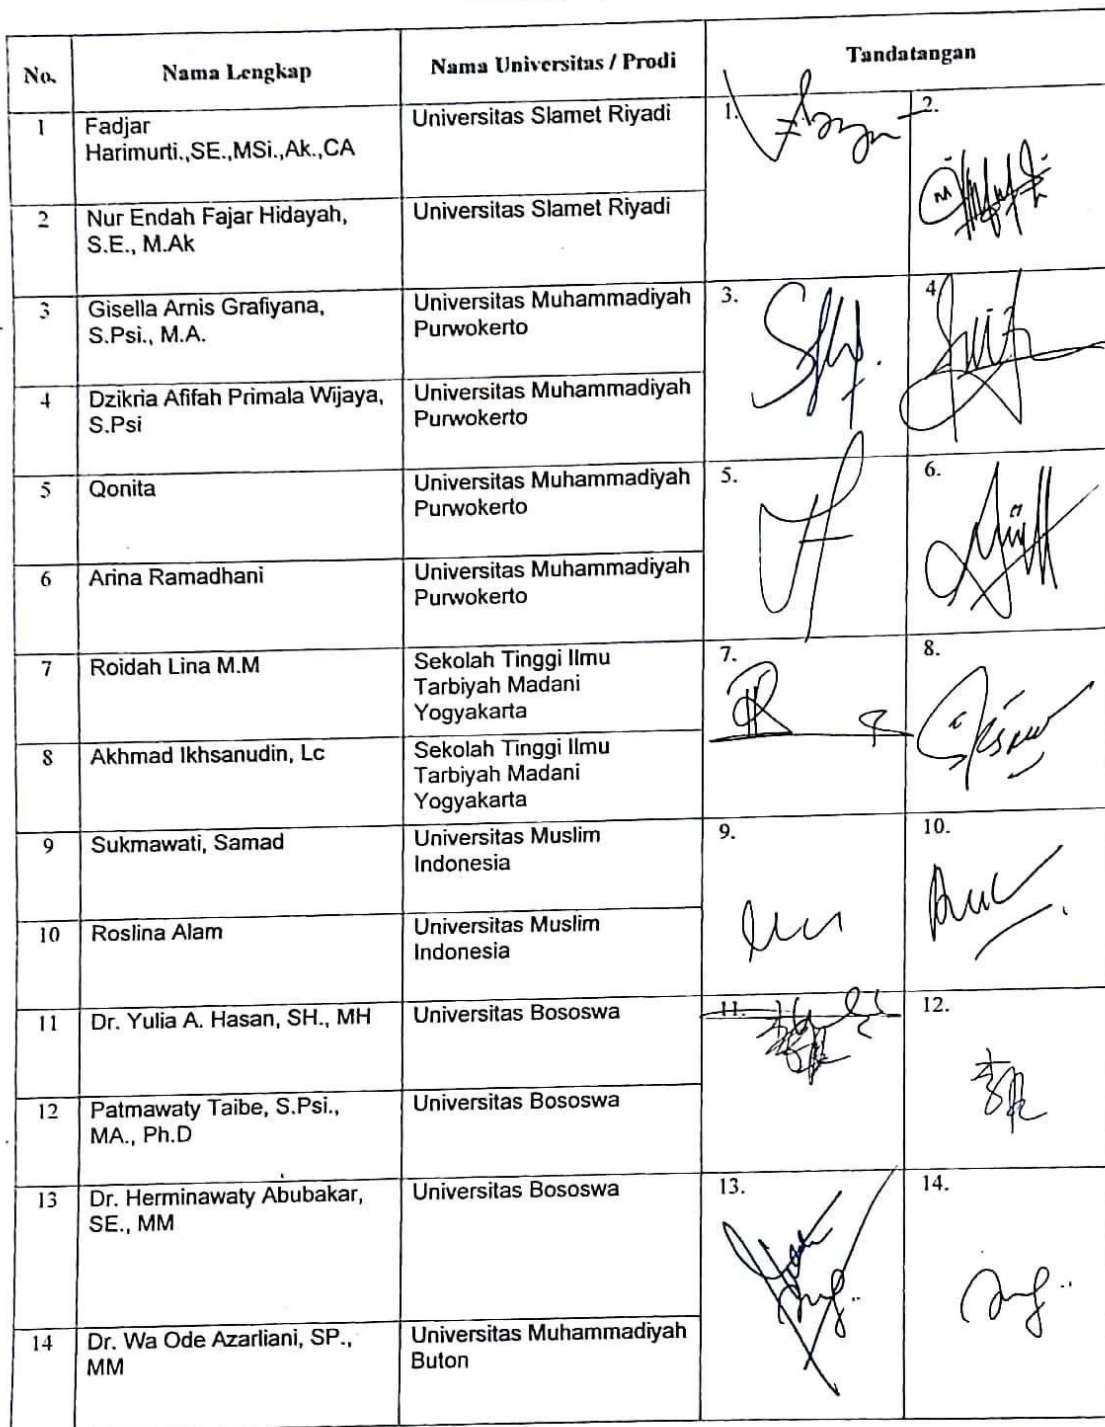 No. Nama Lengkap Nama Universitas / Prodi Tandatangan
1 Fadjar Universitas Slamet Riyadi 1. 2.
Harimurti.,SE.,MSi.,Ak.,CA
2 Nur Endah Fajar Hidayah, Universitas Slamet Riyadi
S.E., M.Ak
3 Gisella Arnis Grafiyana, Universitas Muhammadiyah 3. 4
S.Psi., M.A. Purwokerto
4 Dzikria Afifah Primala Wijaya, Universitas Muhammadiyah
S.Psi Purwokerto
5 Qonita Universitas Muhammadiyah 5. 6.
Purwokerto
6 Arina Ramadhani Universitas Muhammadiyah
Purwokerto
7 Roidah Lina M.M Sekolah Tinggi Ilmu 7. 8.
Tarbiyah Madani
Yogyakarta
8 Akhmad Ikhsanudin, Lc Sekolah Tinggi Ilmu
Tarbiyah Madani
Yogyakarta
9 Sukmawati, Samad Universitas Muslim 9. 10.
Indonesia
10 Roslina Alam Universitas Muslim
Indonesia
11 Dr. Yulia A. Hasan, SH., MH Universitas Bososwa 11. 12.
12 Patmawaty Taibe, S.Psi., Universitas Bososwa
MA., Ph.D
13 Dr. Herminawaty Abubakar, Universitas Bososwa 13. 14.
SE., MM
14 Dr. Wa Ode Azarliani, SP., Universitas Muhammadiyah
MM Buton